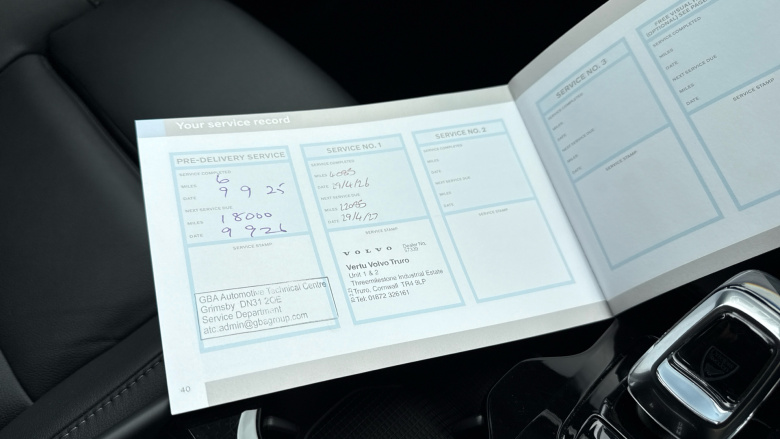 Your service record
PRE-DELIVERY SERVICE
SERVICE COMPLETED
MILES 6
DATE 9 9 25
NEXT SERVICE DUE
MILES 18000
DATE 9 9 26
SERVICE STAMP
GBA Automotive Technical Centre
Grimsby DN31 2QE
Service Department
atc.admin@gbagroup.com
SERVICE NO. 1
SERVICE COMPLETED
MILES 6085
DATE 29/4/26
NEXT SERVICE DUE
MILES
DATE 29/4/27
SERVICE STAMP
VOLVO
Dealer No.
Vertu Volvo Truro
Unit 1 & 2
Threemilestone Industrial Estate
Truro, Cornwall TR4 9LP
Tel: 01872 326161
SERVICE NO. 2
SERVICE COMPLETED
MILES
DATE
NEXT SERVICE DUE
MILES
DATE
SERVICE STAMP
40
SERVICE NO. 3
SERVICE COMPLETED
MILES
DATE
NEXT SERVICE DUE
MILES
DATE
SERVICE STAMP
FREE VISUAL
(OPTIONAL) SEE PAGE
SERVICE COMPLETED
MILES
DATE
NEXT SERVICE DUE
MILES
DATE
SERVICE STAMP